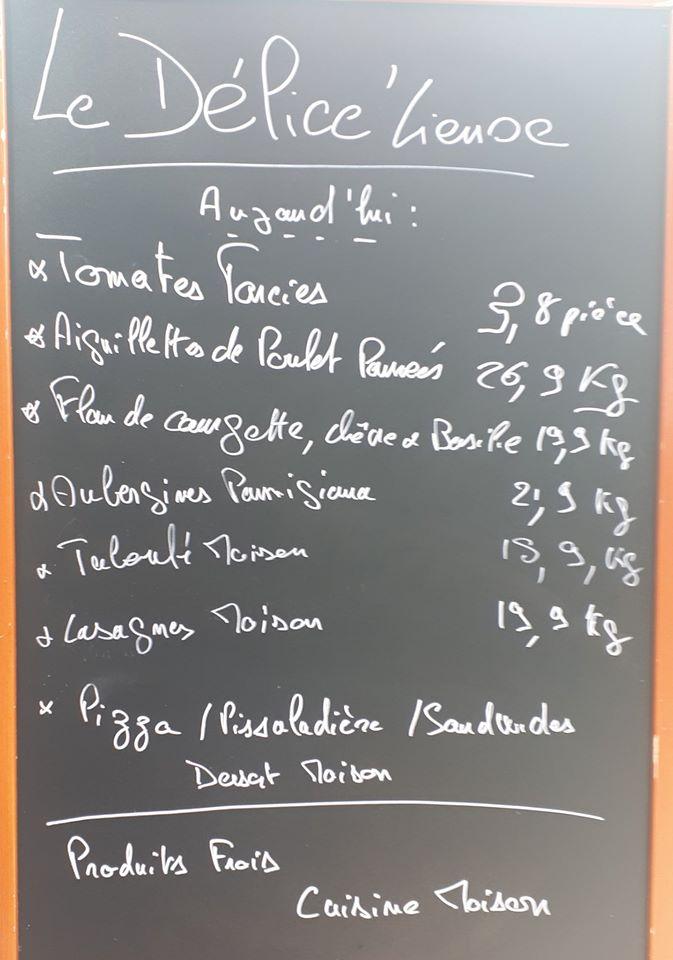 Le Délice'Lieuse
Aujourd'hui :
Tomates Farcies 3,8 pièce
Aiguillettes de Poulet Panées 26,9 Kg
Flan de courgette, chèvre & Basilic 19,9 kg
Aubergines Parmigiana 21,9 kg
Taboulé Maison 15,9, kg
Lasagnes Maison 19,9 kg
Pizza / Pissaladière / Sandwiches
Dessert Maison
Produits Frais
Cuisine Maison